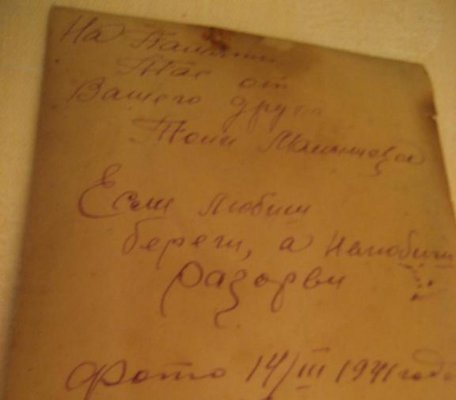 На Память
Тае от
Вашего друга
Тони
Если любиш
береги, а нелюбиш
разорви
Фото 14/III 1941 года